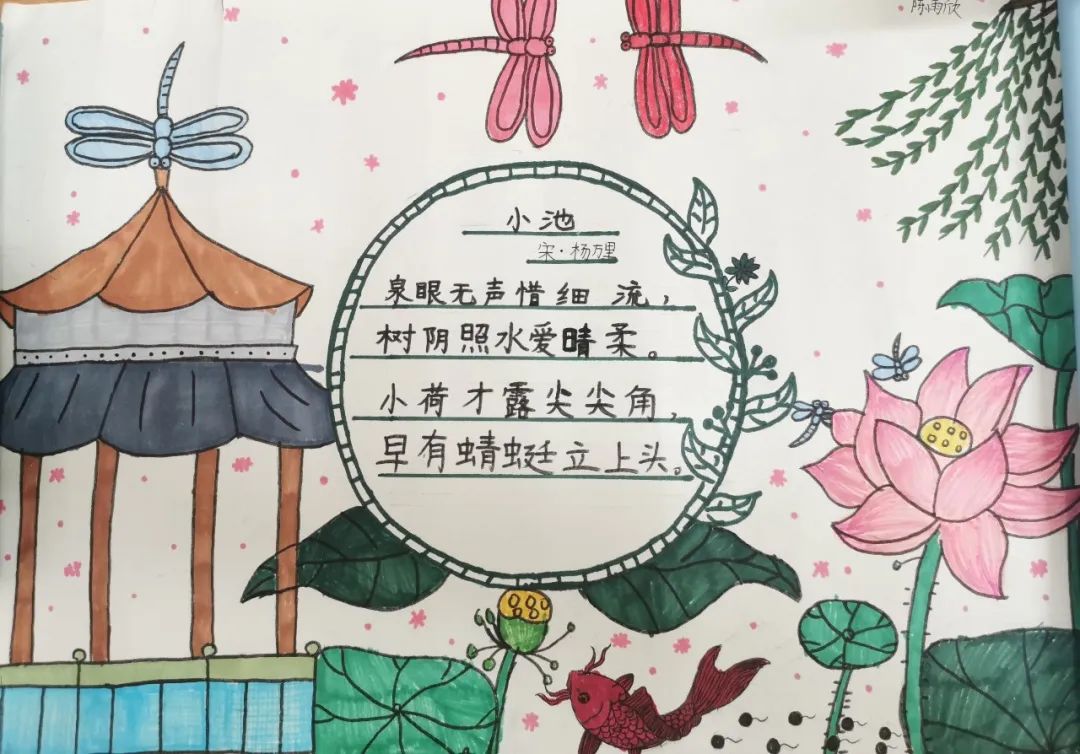 陈雨欣
小池
宋·杨万里
泉眼无声惜细流，
树阴照水爱晴柔。
小荷才露尖尖角，
早有蜻蜓立上头。